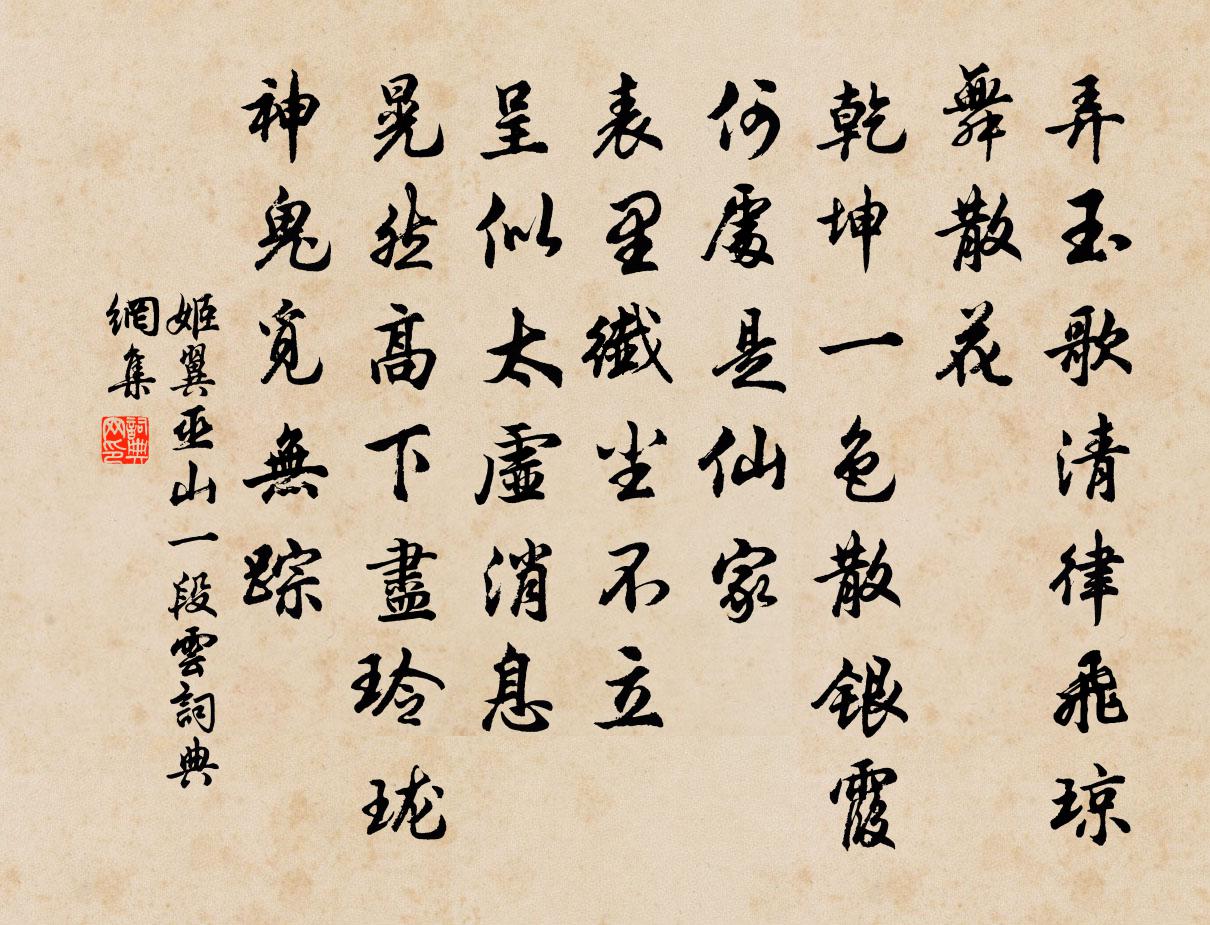 弄玉歌清律飛琼
舞散花
乾坤一色散銀霞
何處是仙家
表里纖尘不立
呈似太虛消息
晃然高下盡玲珑
神鬼覓無踪
姬翼巫山一段雲詞典
網集
詞典
网印